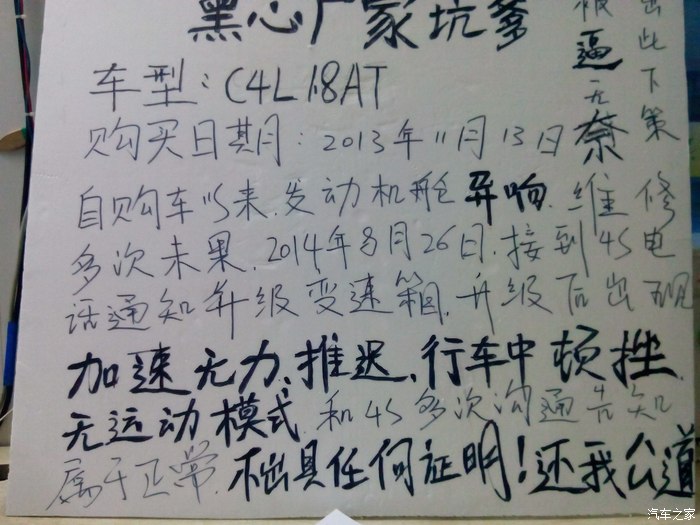 黑心厂家坑爹
被逼无奈
出此下策
车型：C4L 1.8AT
购买日期：2013年11月13日
自购车以来，发动机舱异响，维修
多次未果，2014年8月26日，接到4S电
话通知升级变速箱，升级后出现
加速无力、推迟、行车中顿挫，
无运动模式，和4S多次沟通告知
属于正常，不出具任何证明！还我公道
汽车之家